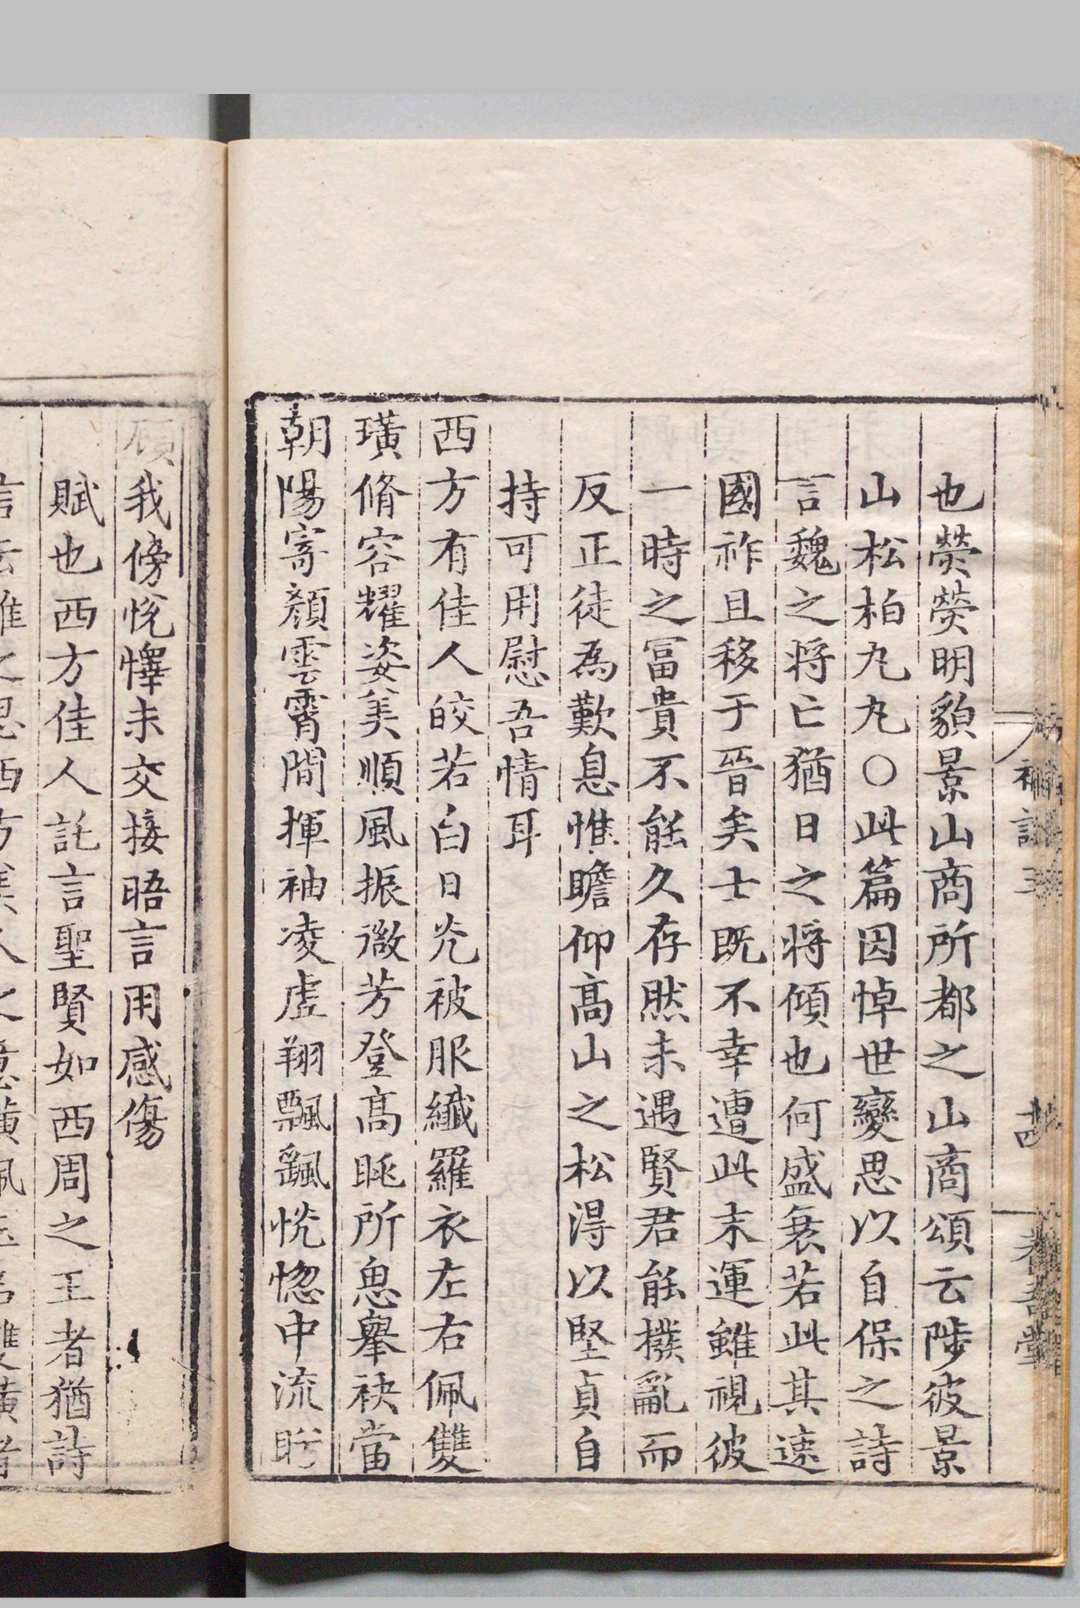 也熒熒明貌景山商所都之山商頌云陟彼景
山松柏丸丸○此篇因悼世變思以自保之詩
言魏之將亡猶日之將傾也何盛衰若此其速
國祚且移于晉矣士既不幸遭此末運雖視彼
一時之冨貴不能久存然未遇賢君能撥亂而
反正徒為歎息惟瞻仰髙山之松淂以堅貞自
持可用慰吾情耳
西方有佳人皎若白日光被服纖羅衣左右佩雙
璜脩容耀姿美順風振微芳登髙眺所思舉袂當
朝陽寄顏雲霄間揮袖凌虛翔飄颻恍惚中流眄
顧我傍悅懌未交接晤言用感傷
賦也西方佳人託言聖賢如西周之王者猶詩